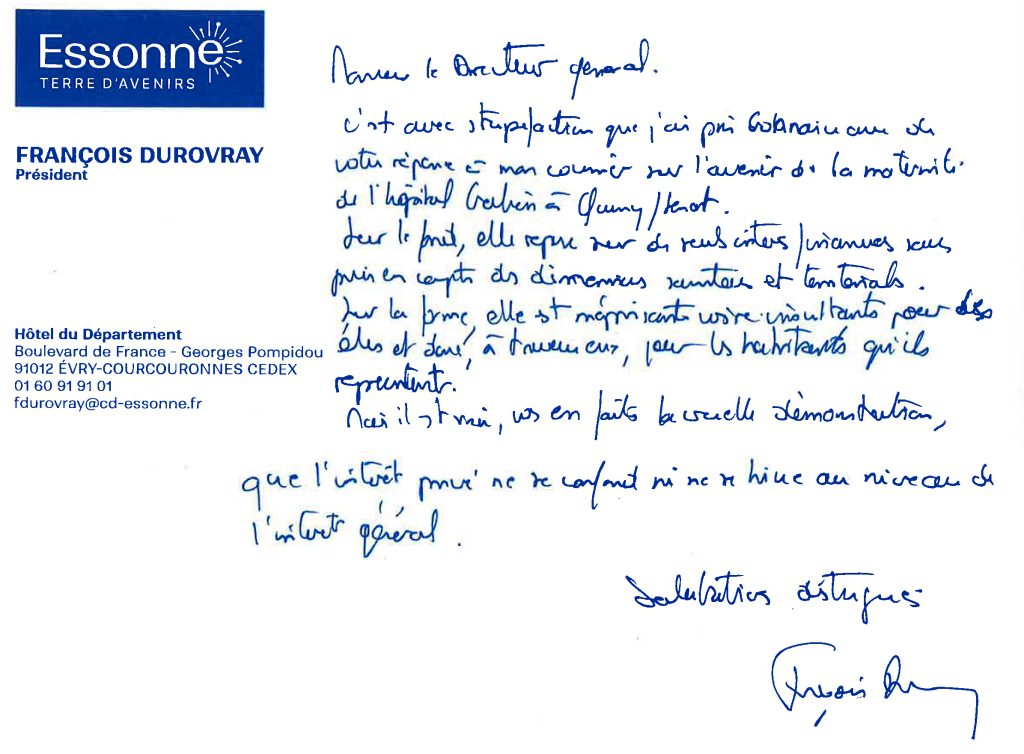 Essonne
TERRE D'AVENIRS
FRANÇOIS DUROVRAY
Président
Hôtel du Département
Boulevard de France - Georges Pompidou
91012 ÉVRY-COURCOURONNES CEDEX
01 60 91 91 01
fdurovray@cd-essonne.fr
Monsieur le Directeur général.
C'est avec stupéfaction que j'ai pris connaissance de
votre réponse à mon courrier sur l'avenir de la maternité
de l'hôpital à Quincy/Senart.
Sur le fond, elle repose sur de seuls critères financiers sans
prise en compte des dimensions sanitaires et territoriales.
Sur la forme, elle est méprisante voire insultante pour des
élus et donc, à travers eux, pour les habitants qu'ils
représentent.
Mais il est vrai, vs en faites la cruelle démonstration,
que l'intérêt privé ne se confond ni ne se hisse au niveau de
l'intérêt général.
Salutations distinguées
François